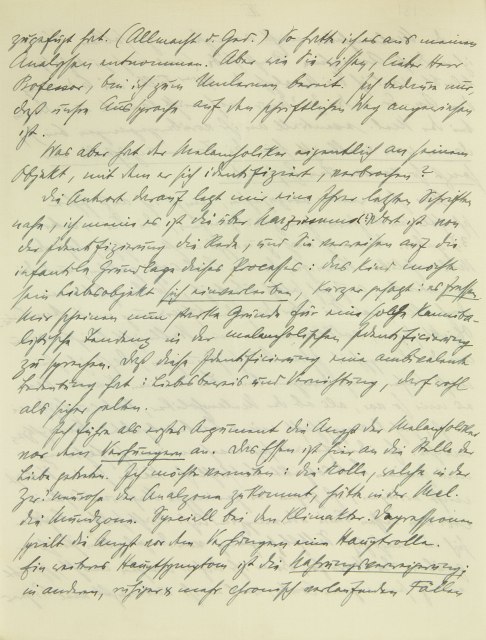 zugefügt hat. (Allmacht d. Ged.) So hatte ich es aus meinen
Analysen entnommen. Aber wie Sie wissen, lieber Herr
Professor, bin ich zum Umlernen bereit. Ich bedaure nur,
daß unsre Aussprache auf den schriftlichen Weg angewiesen
ist.
Was aber hat der Melancholiker eigentlich an seinem
Objekt, mit dem er sich identifiziert, verbrochen?
Die Antwort darauf legt mir eine Ihrer letzten Schriften
nahe, ich meine es ist die über Narzissmus(?) Dort ist von
der Identifizierung die Rede, und Sie verweisen auf die
infantile Grundlage dieses Processes: das Kind möchte
sein Liebesobjekt sich einverleiben, kürzer gesagt: es fressen.
Mir scheinen nun starke Gründe für eine solche kanniba-
listische Tendenz in der melancholischen Identificierung
zu sprechen. Daß diese Identificierung eine ambivalente
Bedeutung hat: Liebesbeweis und Vernichtung, darf wohl
als sicher gelten.
Ich führe als erstes Argument die Angst der Melancholiker
vor dem Verhungern an. Das Essen ist hier an die Stelle der
Liebe getreten. Ich möchte vermuten: die Rolle, welche in der
Zw. neurose der Analzone zukommt, hätte in der Mel.
die Mundzone. Speciell bei den klimakter. Depressionen
spielt die Angst vor dem Verhungern eine Hauptrolle.
Ein weiteres Hauptsymptom ist die Nahrungsverweigerung;
in anderen, ruhiger & mehr chronisch verlaufenden Fällen